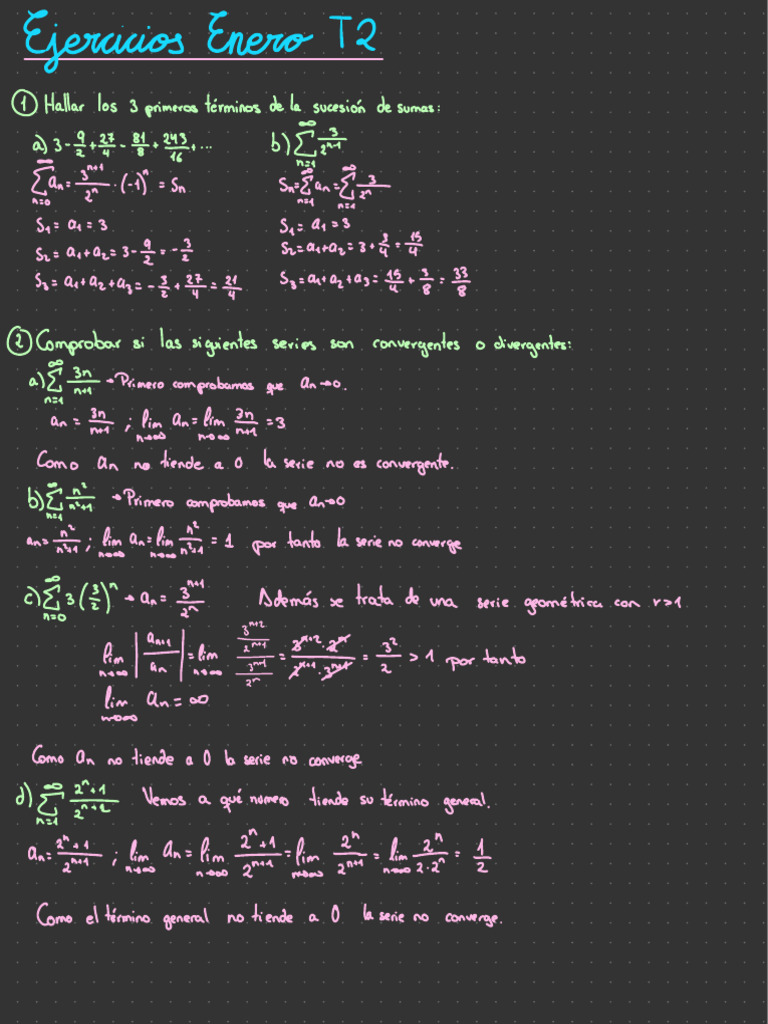 Ejercicios Enero T2
① Hallar los 3 primeros términos de la sucesión de sumas:
a) 3 - 9/2 + 27/4 - 81/8 + 243/16 + ...
∑_{n=0}^{∞} an = 3^{n+1}/2^n · (-1)^n = Sn
S1 = a1 = 3
S2 = a1 + a2 = 3 - 9/2 = - 3/2
S3 = a1 + a2 + a3 = - 3/2 + 27/4 = 21/4
b) ∑_{n=1}^{∞} 3/2^{n-1}
Sn = ∑_{n=1}^{∞} an = ∑_{n=1}^{∞} 3/2^n
S1 = a1 = 3
S2 = a1 + a2 = 3 + 3/4 = 15/4
S3 = a1 + a2 + a3 = 15/4 + 3/8 = 33/8
② Comprobar si las siguientes series son convergentes o divergentes:
a) ∑_{n=1}^{∞} 3n/n+1 → Primero comprobamos que an→0.
an = 3n/n+1 ; lím_{n→∞} an = lím_{n→∞} 3n/n+1 = 3
Como an no tiende a 0 la serie no es convergente.
b) ∑_{n=1}^{∞} n²/n²+1 → Primero comprobamos que an→0
an = n²/n²+1 ; lím_{n→∞} an = lím_{n→∞} n²/n²+1 = 1 por tanto la serie no converge
c) ∑_{n=0}^{∞} 3(3/2)^n → an = 3^{n+1}/2^n Además se trata de una serie geométrica con r>1
lím_{n→∞} |an+1/an| = lím_{n→∞} (3^{n+2}/2^{n+1})/(3^{n+1}/2^n) = 3^{n+2}·2^n/2^{n+1}·3^{n+1} = 3²/2 > 1 por tanto
lím_{n→∞} an = ∞
Como an no tiende a 0 la serie no converge
d) ∑_{n=1}^{∞} 2^n+1/2^n+2 Vemos a qué número tiende su término general.
an = 2^n+1/2^{n+1} ; lím_{n→∞} an = lím_{n→∞} 2^n+1/2^{n+1} = lím_{n→∞} 2^n/2^{n+1} = lím_{n→∞} 2^n/2·2^n = 1/2
Como el término general no tiende a 0 la serie no converge.